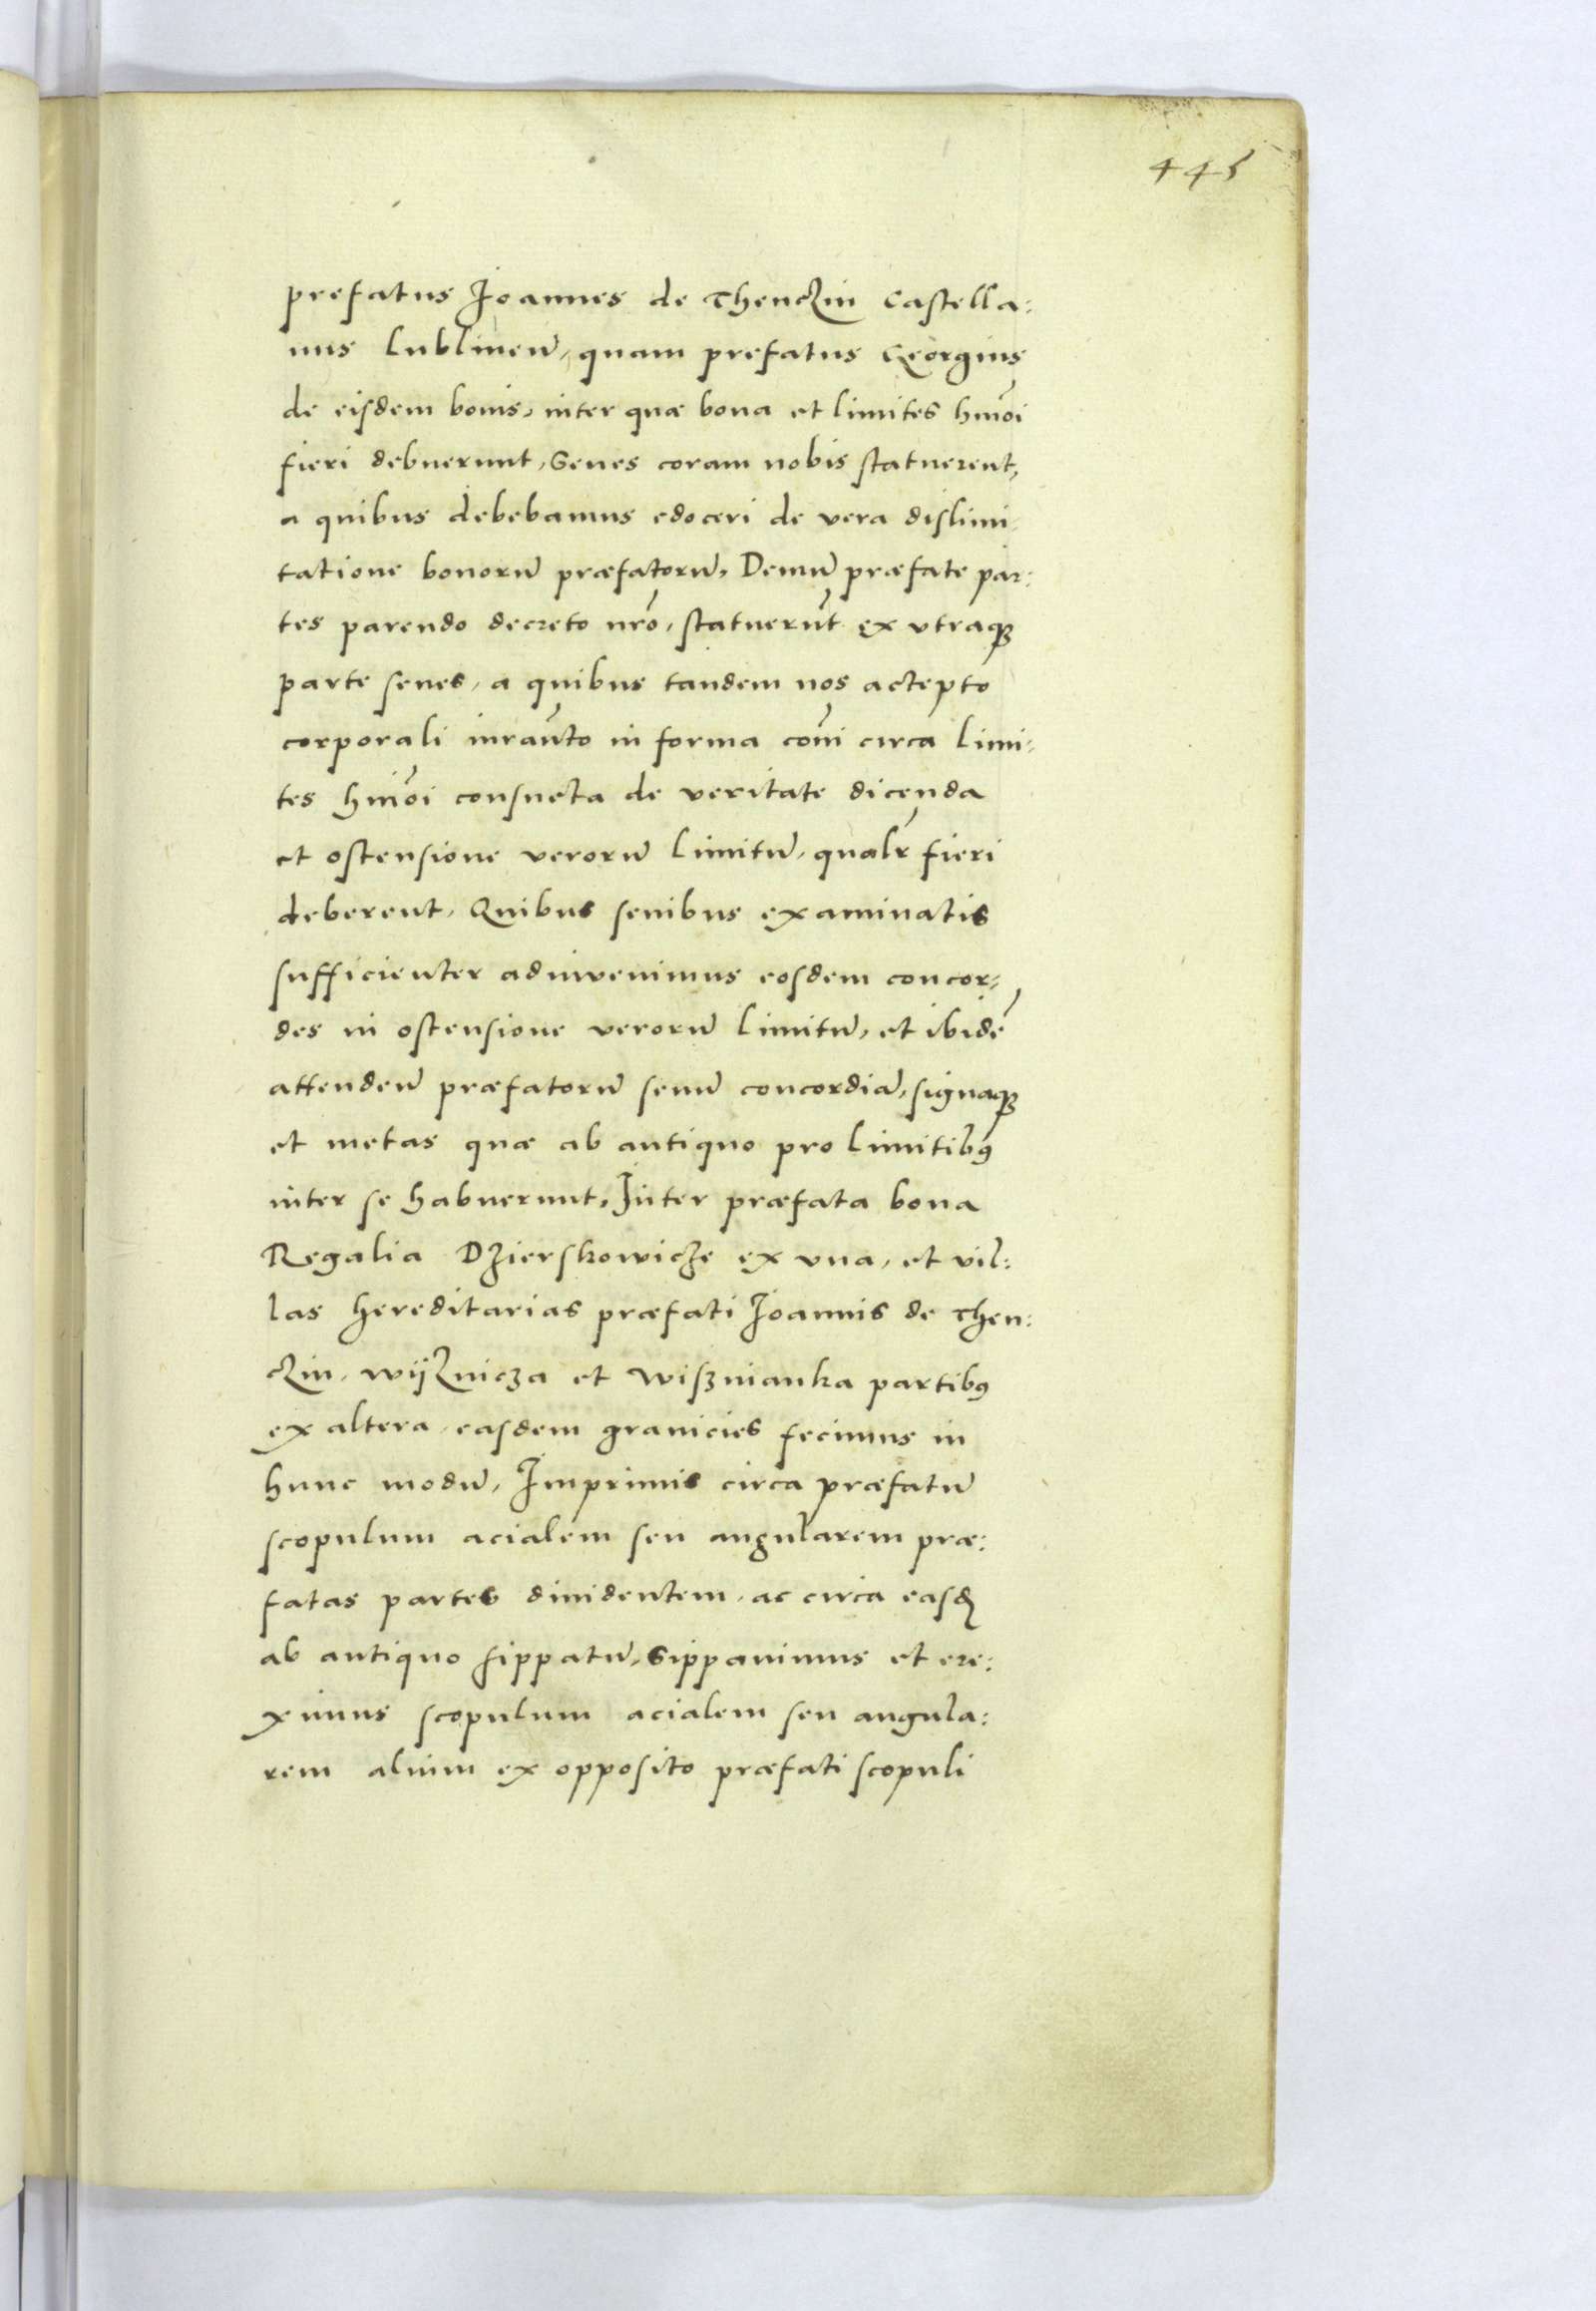 445
prefatus Joannes de Thenczin Castella:
nus Lublinen̄, quam prefatus Georgius
de eisdem bonis, inter quæ bona et limites hmōi
fieri debuerunt, Senes coram nobis statuerent,
a quibus debebamus edoceri de vera dislimi-
tatione bonorū præfatorū, Demū præfate par:
tes parendo decreto nr̄o, statuerūt ex vtraqꝫ
parte senes, a quibus tandem nos accepto
corporali iurāto in forma com̄i circa limi:
tes hmōi consueta de veritate dicenda
et ostensione verorū limitū, qualr̄ fieri
deberent, Quibus senibus examinatis
sufficienter adinvenimus eosdem concor-
des in ostensione verorū limitū, et ibidē
attenden̄ præfatorū senū concordiā, signaqꝫ
et metas quæ ab antiquo pro limitibꝰ
inter se habuerunt, Inter præfata bona
Regalia Dzierskowicze ex vna, et vil:
las hereditarias præfati Joannis de Then:
czin, wÿznicza et wisznianka partibꝰ
ex altera, easdem granicies fecimus in
hunc modū, Imprimis circa præfatū
scopulum acialem seu angularem præ:
fatas partes diuidentem, ac circa easdꝫ
ab antiquo sippatū, Sippauimus et ere:
ximus scopulum acialem seu angula:
rem alium ex opposito præfati scopuli